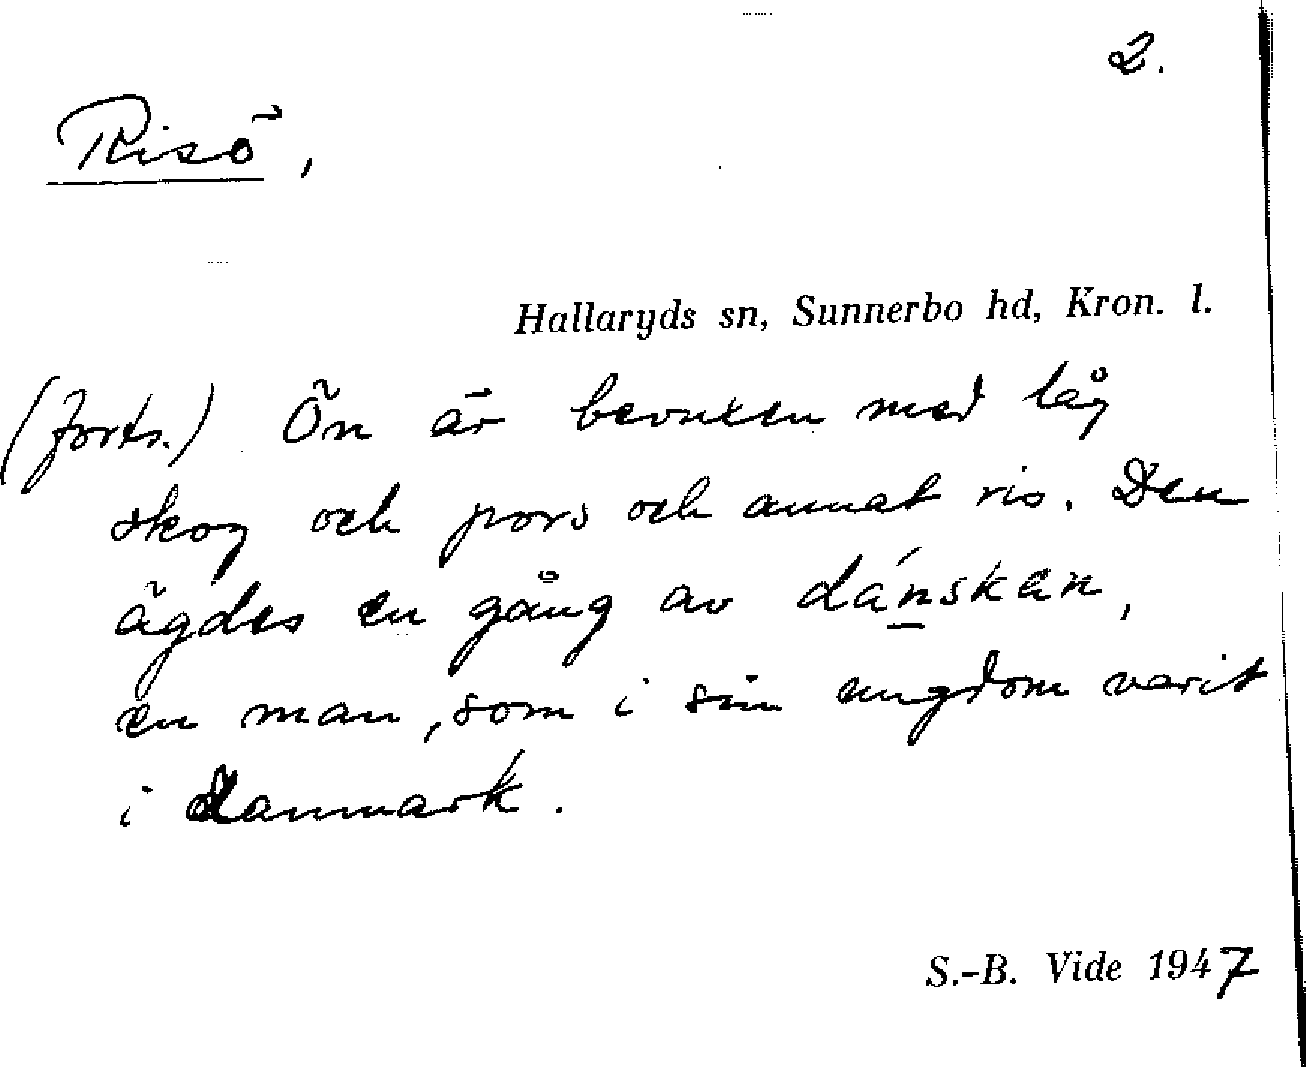 2.
Risö,
Hallaryds sn, Sunnerbo hd, Kron. l.
(forts.) Ön är bevuxen med låg
skog och pors och annat ris. Den
ägdes en gång av dánsken,
en man, som i sin ungdom varit
i Danmark.
S.-B. Vide 1947